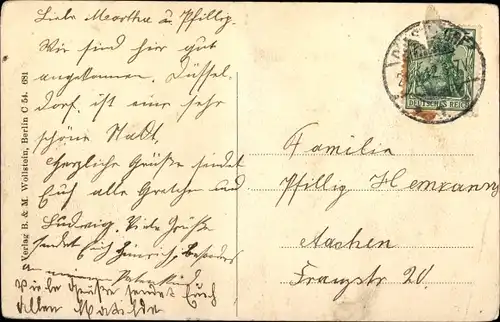 Liebe Martha u. Pfillig.
Wir sind hier gut
angekommen. Düssel-
dorf. ist eine sehr
schöne Stadt,
herzliche Grüße sendet
Euch alle Gretchen und
Ludwig. Viele Grüße
sendet Euch Heinrich, besonders
an meinen Patenkind
Viele Grüße sendet Euch
Allen Mathilde
Verlag B. & M. Wollstein, Berlin C 54. 681
DEUTSCHES REICH
Familie
Pfillig
Aachen
Franzstr 20.